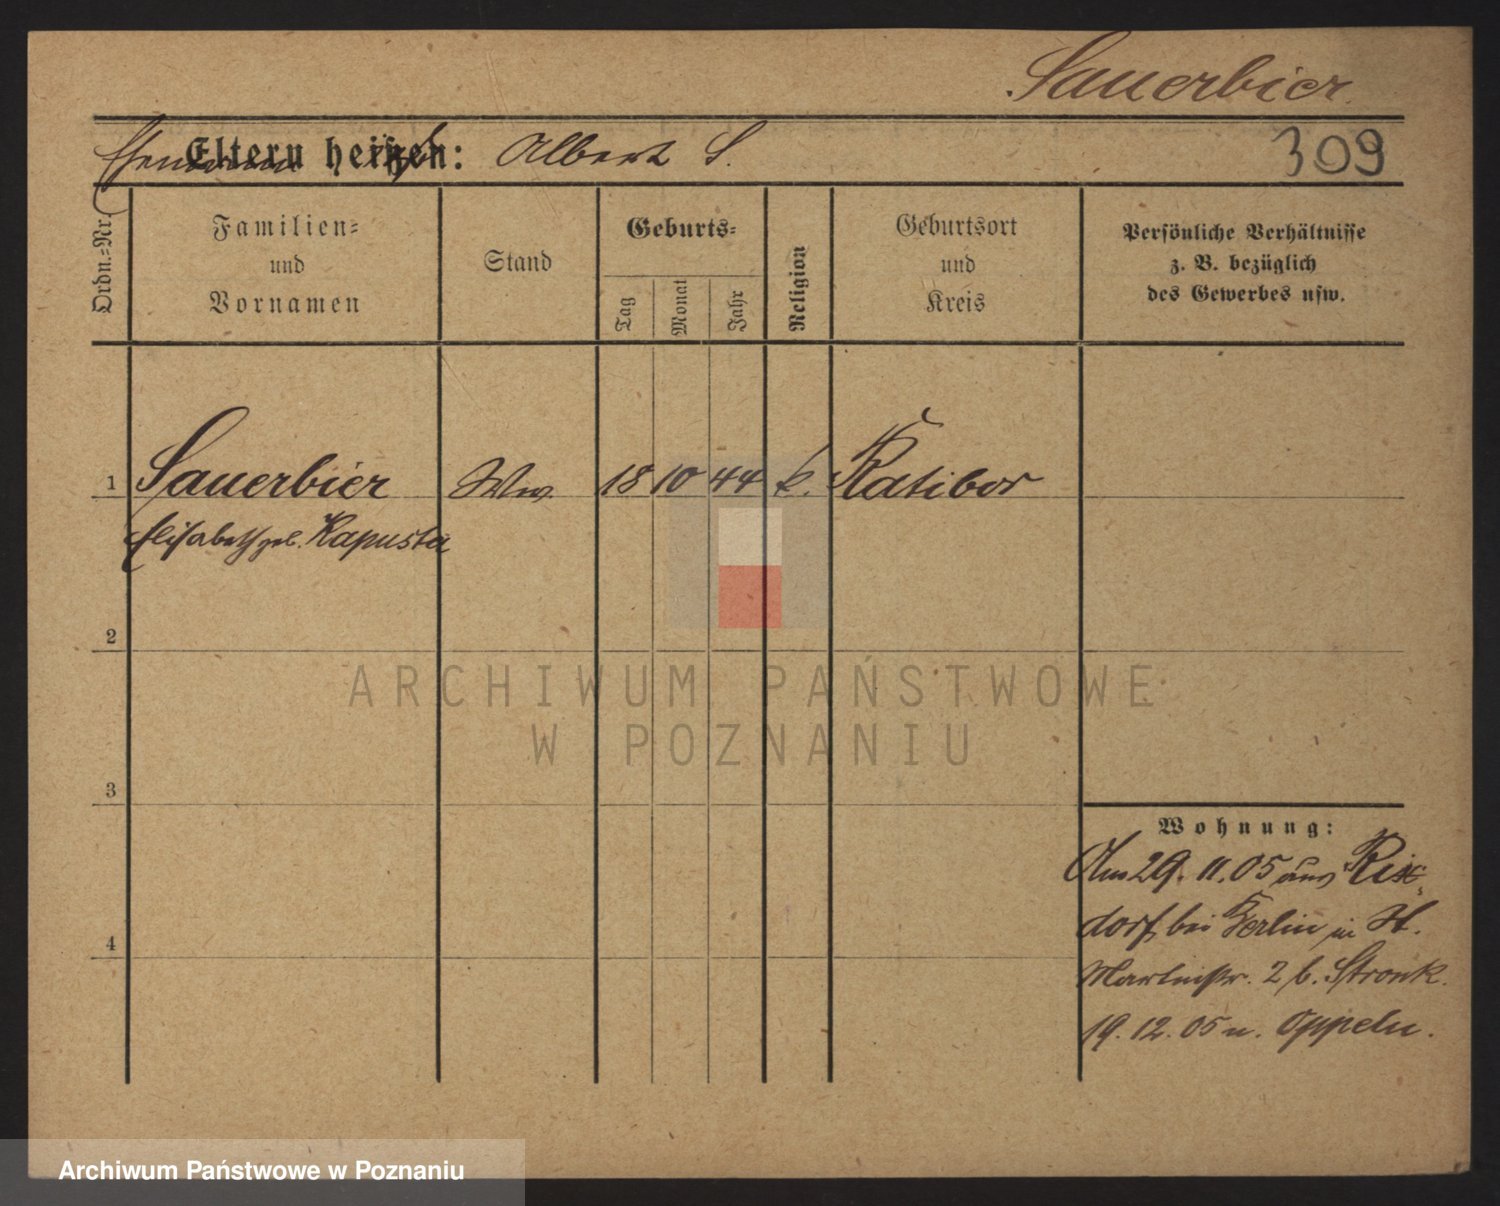 Sauerbier
Eltern heißen: Albert S.
309
Ordn.-Nr.
Familien-
und
Vornamen
Stand
Geburts-
Tag
Monat
Jahr
Religion
Geburtsort
und
Kreis
Persönliche Verhältnisse
z. B. bezüglich
des Gewerbes usw.
1 Sauerbier Ww. 18 10 44 k. Ratibor
Elisabeth geb. Kapusta
2
3
4
Wohnung:
Am 29. 11. 05 aus Rix-
dorf bei Berlin in St.
Martinstr. 2 b. Stronk.
19. 12. 05 n. Oppeln.
ARCHIWUM PAŃSTWOWE
W POZNANIU
Archiwum Państwowe w Poznaniu